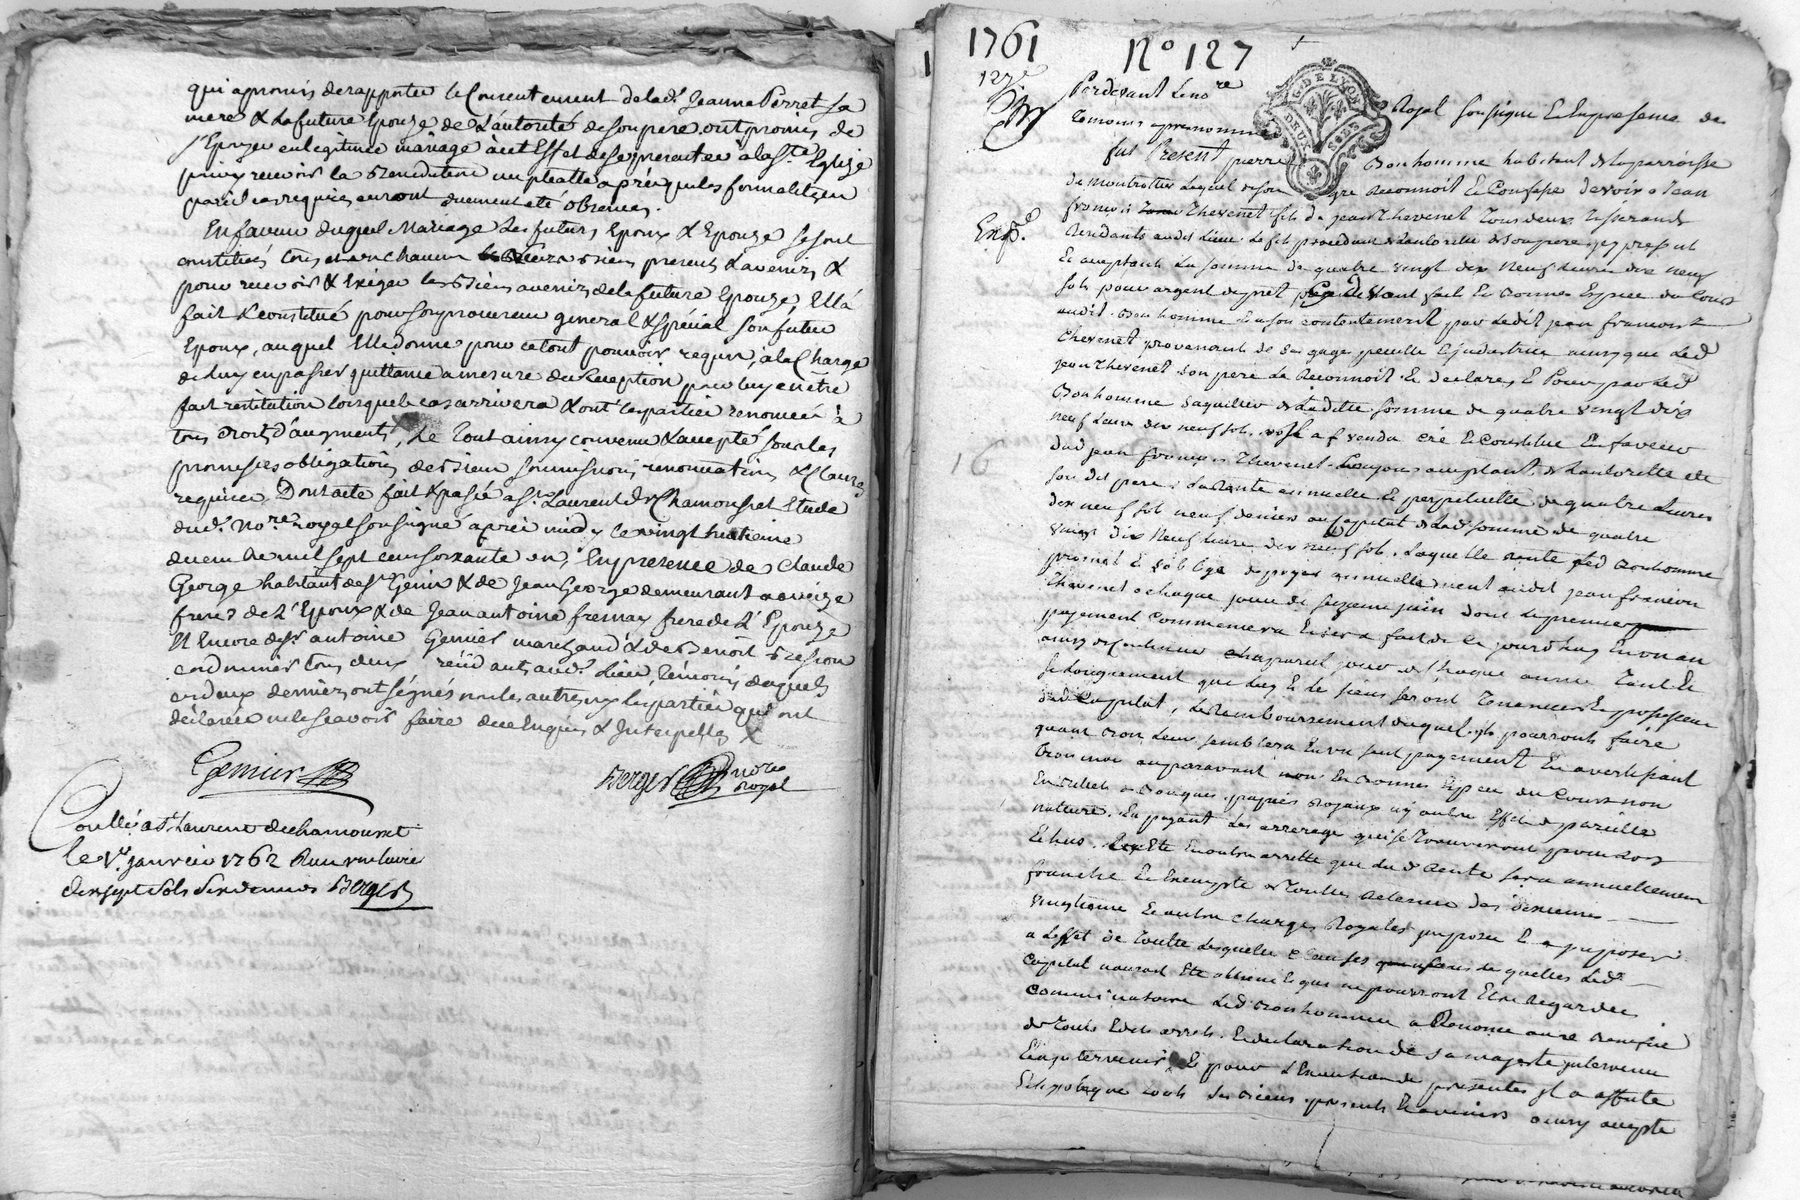 qui a promis de rapporter le Consentement de lad. Jeanne Perret sa
mere & La future Epouze de L'autorité de son pere ont promis de
s'Epouzer en legitime mariage à cet Effet de se presenter à la Ste Eglize
pour recevoir la Benediction nuptialle après que les formalitzés
pareil cas requises auront duement été observées.
En faveur duquel Mariage les futurs Epoux & Epouze se sont
constitués tous et un chacun leurs Biens presents & avenirs &
pour recevoir & Exiger les Biens avenirs de la future Epouze, Ella
fait & constitué pour son procureur general & spécial son futur
Epoux, auquel Elle donne pour ce tout pouvoir requis, à la Charge
de luy en passer quittance a mesure de Reception pour luy en être
fait restitution lorsque le cas arrivera & ont les parties renoncé à
tous droits d'augments, Le Tout ainsy convenu & accepté sous les
promesses obligations de Biens soumissions, renonciations & Clauses
requises. Dont acte fait & passé a St Laurent de Chamousset Etude
dud. Nore royal soussigné après midy le vingt huitieme
decembre mil sept cens soixante un, En presence de Claude
George habitant de St Genis & de Jean George demeurant a
freres de L'Epoux & de Jean antoine fresnay frere de L'Epouze
Et Encore de Sr antoine Gemier marchand & de Benoit Bession
cordonnier tous deux résidants aud. Lieu, témoins desquels
ces deux derniers ont signés non les autres ny les parties qui ont
déclarées ne le sçavoir faire de ce Enquis & Interpellés
Gemier
Berger nore
Royal
Conllé a St Laurent de chamousset
le 1er janvier 1762 Reçu
dix sept sols six deniers Berger
1761
No 127
127e
Pardevant Le nore Royal soussigné Et En presence des
Temoins apres nommés
fut Present pierre Bonhomme habitant de la parroisse
de montrottier Lequel de son gré Reconnoit Et Confesse devoir a Jean
Exp.d
francois Thevenet fils de jean Thevenet Tous deux tisserands
Residants audit Lieu. Le fils procedant de L'autorité de son pere, icy present
Et acceptants La somme de quatre vingt dix Neuf Livres dix neuf
sols pour argent de pret fait En Bonnes Espece du Cours
audit Bonhomme Et a son contentement par Ledit jean francois
Thevenet provenant de ses gages, pecule Et industrie ainsy que Led
jean Thevenet son pere Le Reconnoit Et Declare, Et Pour par Led
Bonhomme s'aquitter de Ladite somme de quatre vingt dix
neuf Livres dix neuf sols, a vendu créé Et Constitué En faveur
dud jean francois Thevenet acceptant de L'autorité de
son dit pere. La Rente annuelle Et perpetuelle de quatre Livres
dix neuf sols neuf deniers au Capital de Lad somme de quatre
vingt dix Neuf Livres dix neuf sols. Laquelle rente Led Bonhomme
promet Et s'oblige de payer annuellement audit jean francois
Thevenet a chaque jour du seizieme juin dont Le premier
payement Commencera Et sera fait de Ce jourd'huy En un an
ainsy de Continuer a pareil jour de chaque année Tant Et
si Longuement que Luy Et Les siens seront Tenanciers Et possesseurs
dud Capital, Le Remboursement duquel ils pourront faire
quant Bon Leur semblera En un seul payement En avertissant
Trois mois auparavant En Bonnes Especes du Cours non
En Billets de Banques, papiers Royaux ny autre Effets de pareille
nature, En payant Les arrerages qui se trouveront pour Lors
Echus. Eté Encoutre arretté que Lad Rente sera annuellement
franche Et Exempte de Toutes Retenues des dixiemes
vingtieme Et autres Charges Royales imposées Et a imposer
a L'effet de Toutte Lesquelles Clauses sans Lesquelles Led
Capital n'auroit Eté alliené Et que ne pourront Etre Regardées
Comminatoires Led Bonhomme a Renoncé au Benefice
de Touts Edits arrets, Et declaration de sa majesté intervenus
Et a intervenir. Et pour L'Execution des presentes il a affecté
Et hipotequé touts ses Biens presents Et avenirs ainsy accepté